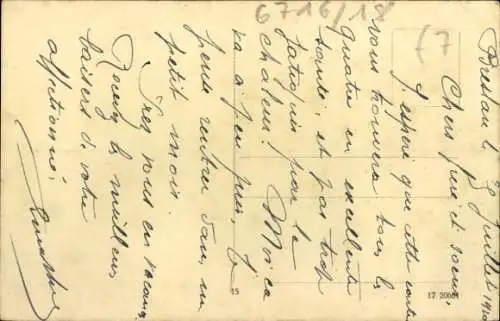 6716/18
Breslau l. Juillet
Chers frère et soeur,
J'espère que cette carte
vous trouvera tous les
quatre en excellente
santé, et pas trop
fatigués par la
chaleur! Moi ca
va à peu près, je
pense rentrer dans un
petit mois.
Recevez les meilleurs
baisers de votre
affectionné,
15
17 2005